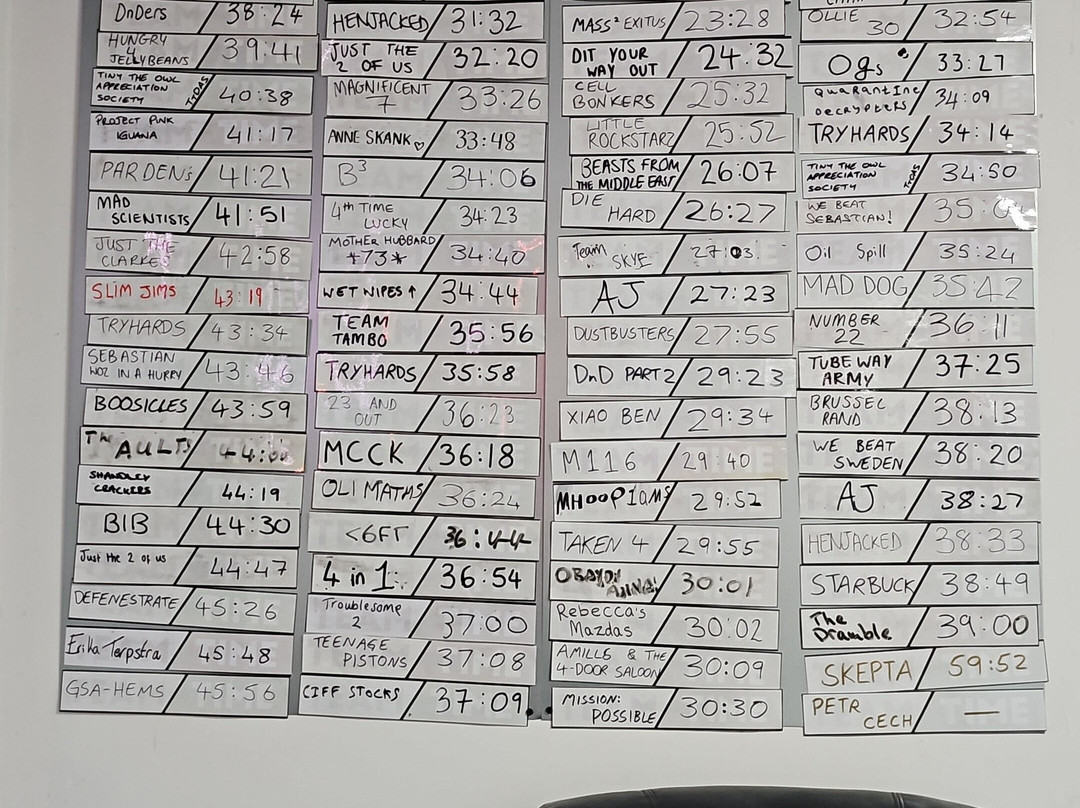 DnDers 38:24
HUNGRY
4
JELLYBEANS 39:41
TINY THE OWL
APPRECIATION
SOCIETY TTOAS 40:38
PROJECT PINK
IGUANA 41:17
PARDENS 41:21
MAD
SCIENTISTS 41:51
JUST THE
CLARKES 42:58
SLIM JIMS 43:19
TRYHARDS 43:34
SEBASTIAN
WOZ IN A HURRY 43:46
BOOSICLES 43:59
THE AULTS
SHANDLEY
CRACKERS 44:19
BIB 44:30
Just the 2 of us 44:47
DEFENESTRATE 45:26
Erika Terpstra 45:48
GSA-HEMS 45:56
HENJACKED 31:32
JUST THE
2 OF US 32:20
MAGNIFICENT
7 33:26
ANNE SKANK ♡ 33:48
B³ 34:06
4th TIME
LUCKY 34:23
MOTHER HUBBARD
*73* 34:40
WET WIPES ↑ 34:44
TEAM
TAMBO 35:56
TRYHARDS 35:58
23 AND
OUT 36:23
MCCK 36:18
OLI MATHS 36:24
<6FT 36:44
4 in 1: 36:54
Troublesome
2 37:00
TEENAGE
PISTONS 37:08
CIFF STOCKS 37:09
MASS² EXITUS 23:28
DIT YOUR
WAY OUT 24:32
CELL
BONKERS 25:32
LITTLE
ROCKSTARZ 25:52
BEASTS FROM
THE MIDDLE EAST 26:07
DIE
HARD 26:27
Team
SKYE 27:03
AJ 27:23
DUSTBUSTERS 27:55
DnD PART 2 29:23
XIAO BEN 29:34
M116 29:40
MHOOP1AMS 29:52
TAKEN 4 29:55
30:01
Rebecca's
Mazdas 30:02
AMILLS & THE
4-DOOR SALOON 30:09
MISSION:
POSSIBLE 30:30
OLLIE
30 32:54
OGs 33:27
QuaRantine
Decrypters 34:09
TRYHARDS 34:14
TINY THE OWL
APPRECIATION
SOCIETY TTOAS 34:50
WE BEAT
SEBASTIAN!
Oil Spill 35:24
MAD DOG 35:42
NUMBER
22 36:11
TUBE WAY
ARMY 37:25
BRUSSEL
RAND 38:13
WE BEAT
SWEDEN 38:20
AJ 38:27
HENJACKED 38:33
STARBUCK 38:49
The
Dramble 39:00
SKEPTA 59:52
PETR
CECH —